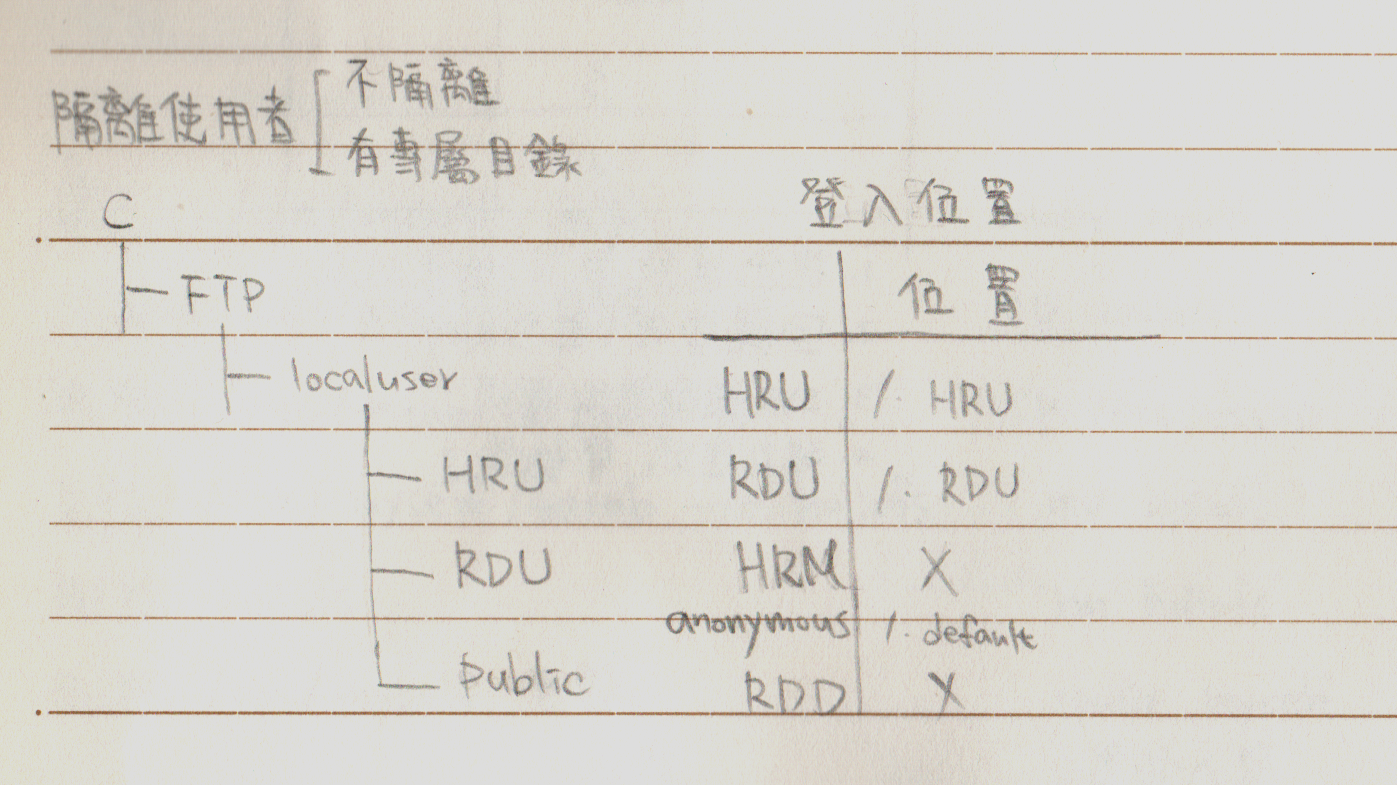 隔離使用者
不隔離
有專屬目錄
C
FTP
localuser
HRU
RDU
public
登入位置
位置
HRU /. HRU
RDU /. RDU
HRM X
anonymous /. default
RDD X